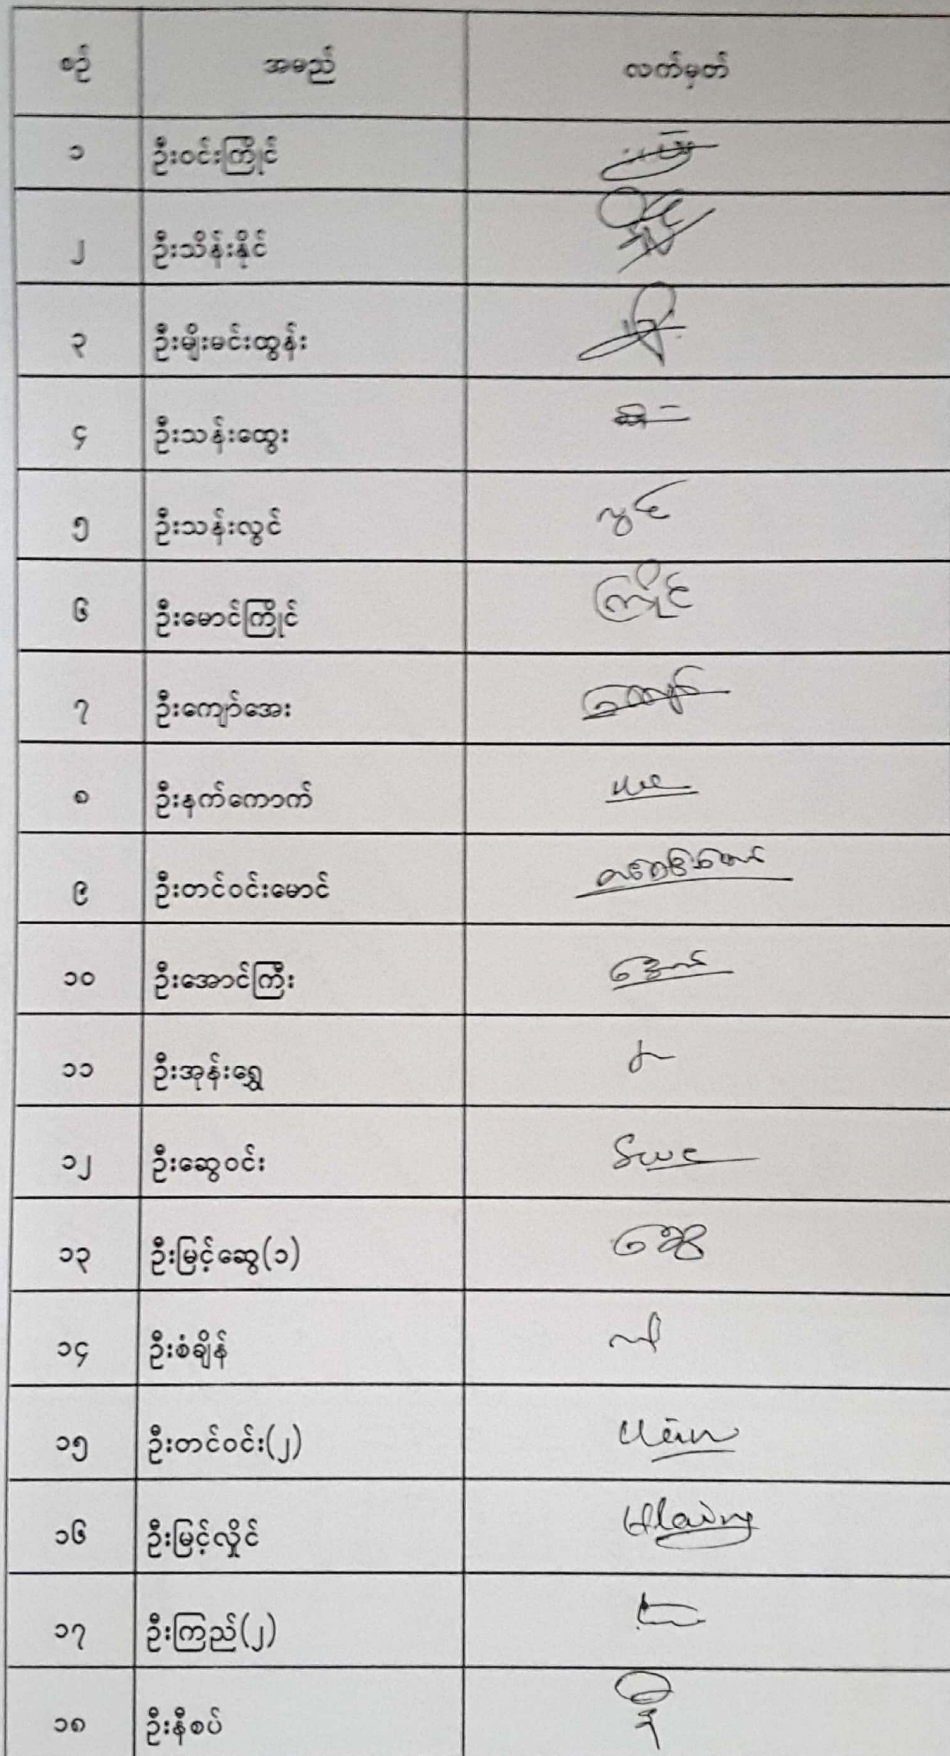 စဉ် အမည် လက်မှတ်
၁ ဦးဝင်းကြိုင်
၂ ဦးသိန်းနိုင်
၃ ဦးမျိုးမင်းထွန်း
၄ ဦးသန်းထွေး
၅ ဦးသန်းလွင် လွင်
၆ ဦးမောင်ကြိုင် ကြိုင်
၇ ဦးကျော်အေး ကျော်
၈ ဦးနက်ကောက်
၉ ဦးတင်ဝင်းမောင်
၁၀ ဦးအောင်ကြီး
၁၁ ဦးအုန်းရွှေ
၁၂ ဦးဆွေဝင်း
၁၃ ဦးမြင့်ဆွေ(၁) ဆွေ
၁၄ ဦးစံချိန်
၁၅ ဦးတင်ဝင်း(၂)
၁၆ ဦးမြင့်လှိုင် Hlaing
၁၇ ဦးကြည်(၂)
၁၈ ဦးနီစပ်